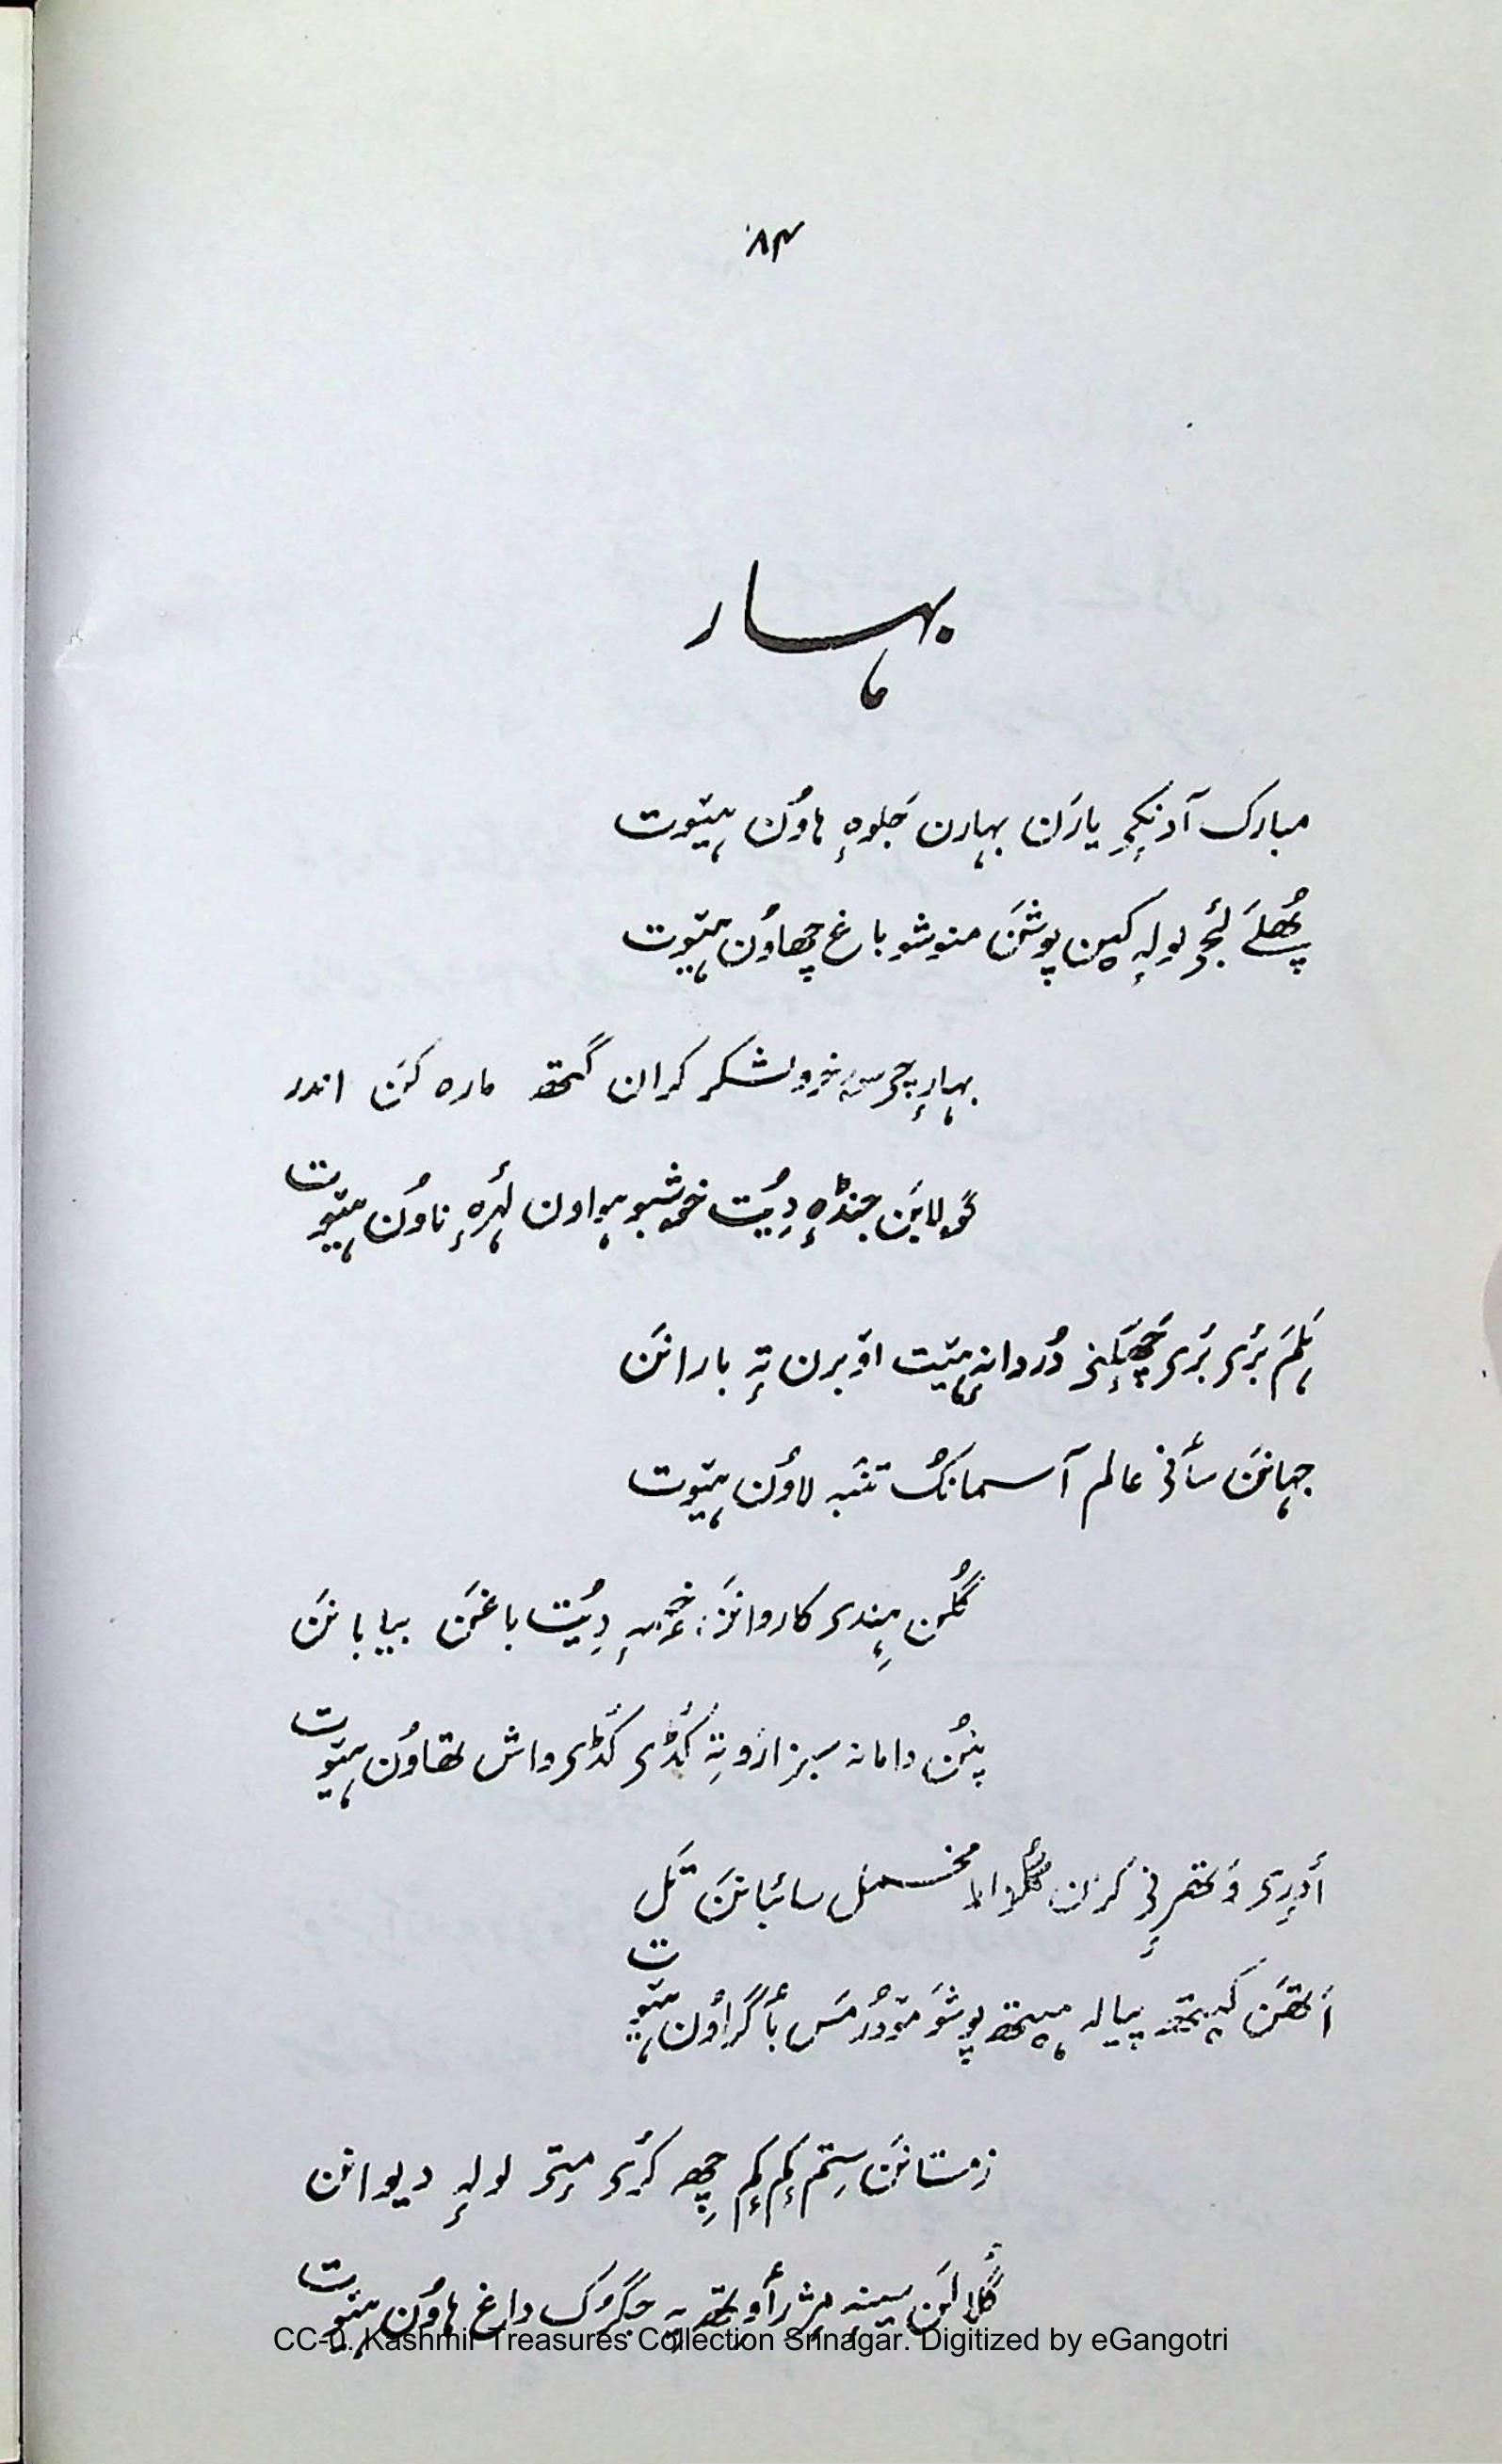 ۸۴
بہار
مبارک آدنِکۍ یارَن بہارن جَلوہٕ ہاوُن ہیٚتوٚت
پھُلَے لٔجۍ لولہٕ کین پوشَن منوشو باغ چھاوُن ہیٚتوٚت
بہارٕچۍ لشکر کران گتھ مارہ کَن اندر
گولابَن جنڈہٕ دِیُت خوشبو ہواون لہرٕ ناوُن ہیٚتوٚت
ہَلَم بٔرۍ بٔرۍ چھکٕنۍ دُردانہٕ ہیٚت اوٚبرن تہٕ بارانَن
جہانَن سٲنۍ عالم آسمانَکُ تنبہ لاوُن ہیٚتوٚت
گُلن ہِندۍ کاروانَن خیمہٕ دِیُت باغَن بیابانَن
پنُن دامانہ سبزارو تہٕ کٔڈۍ کٔڈۍ واش تھاوُن ہیٚتوٚت
أدرۍ وَتھرنۍ کرن مخمل سائبانَن تَل
اَتھَن کیتھ پیالہ ہیتھ پوشَو موٚدُر مَس بٲگراوُن ہیٚتوٚت
زمستانَن سِتم کِم کِم چھِ کٔرۍ مٕتۍ لولہٕ دیوانن
گُلالَن سینہٕ مٕژرٲوِتھ یہِ جِگرُک داغ ہاوُن ہیٚتوٚت
CC-0. Kashmir Treasures Collection Srinagar. Digitized by eGangotri